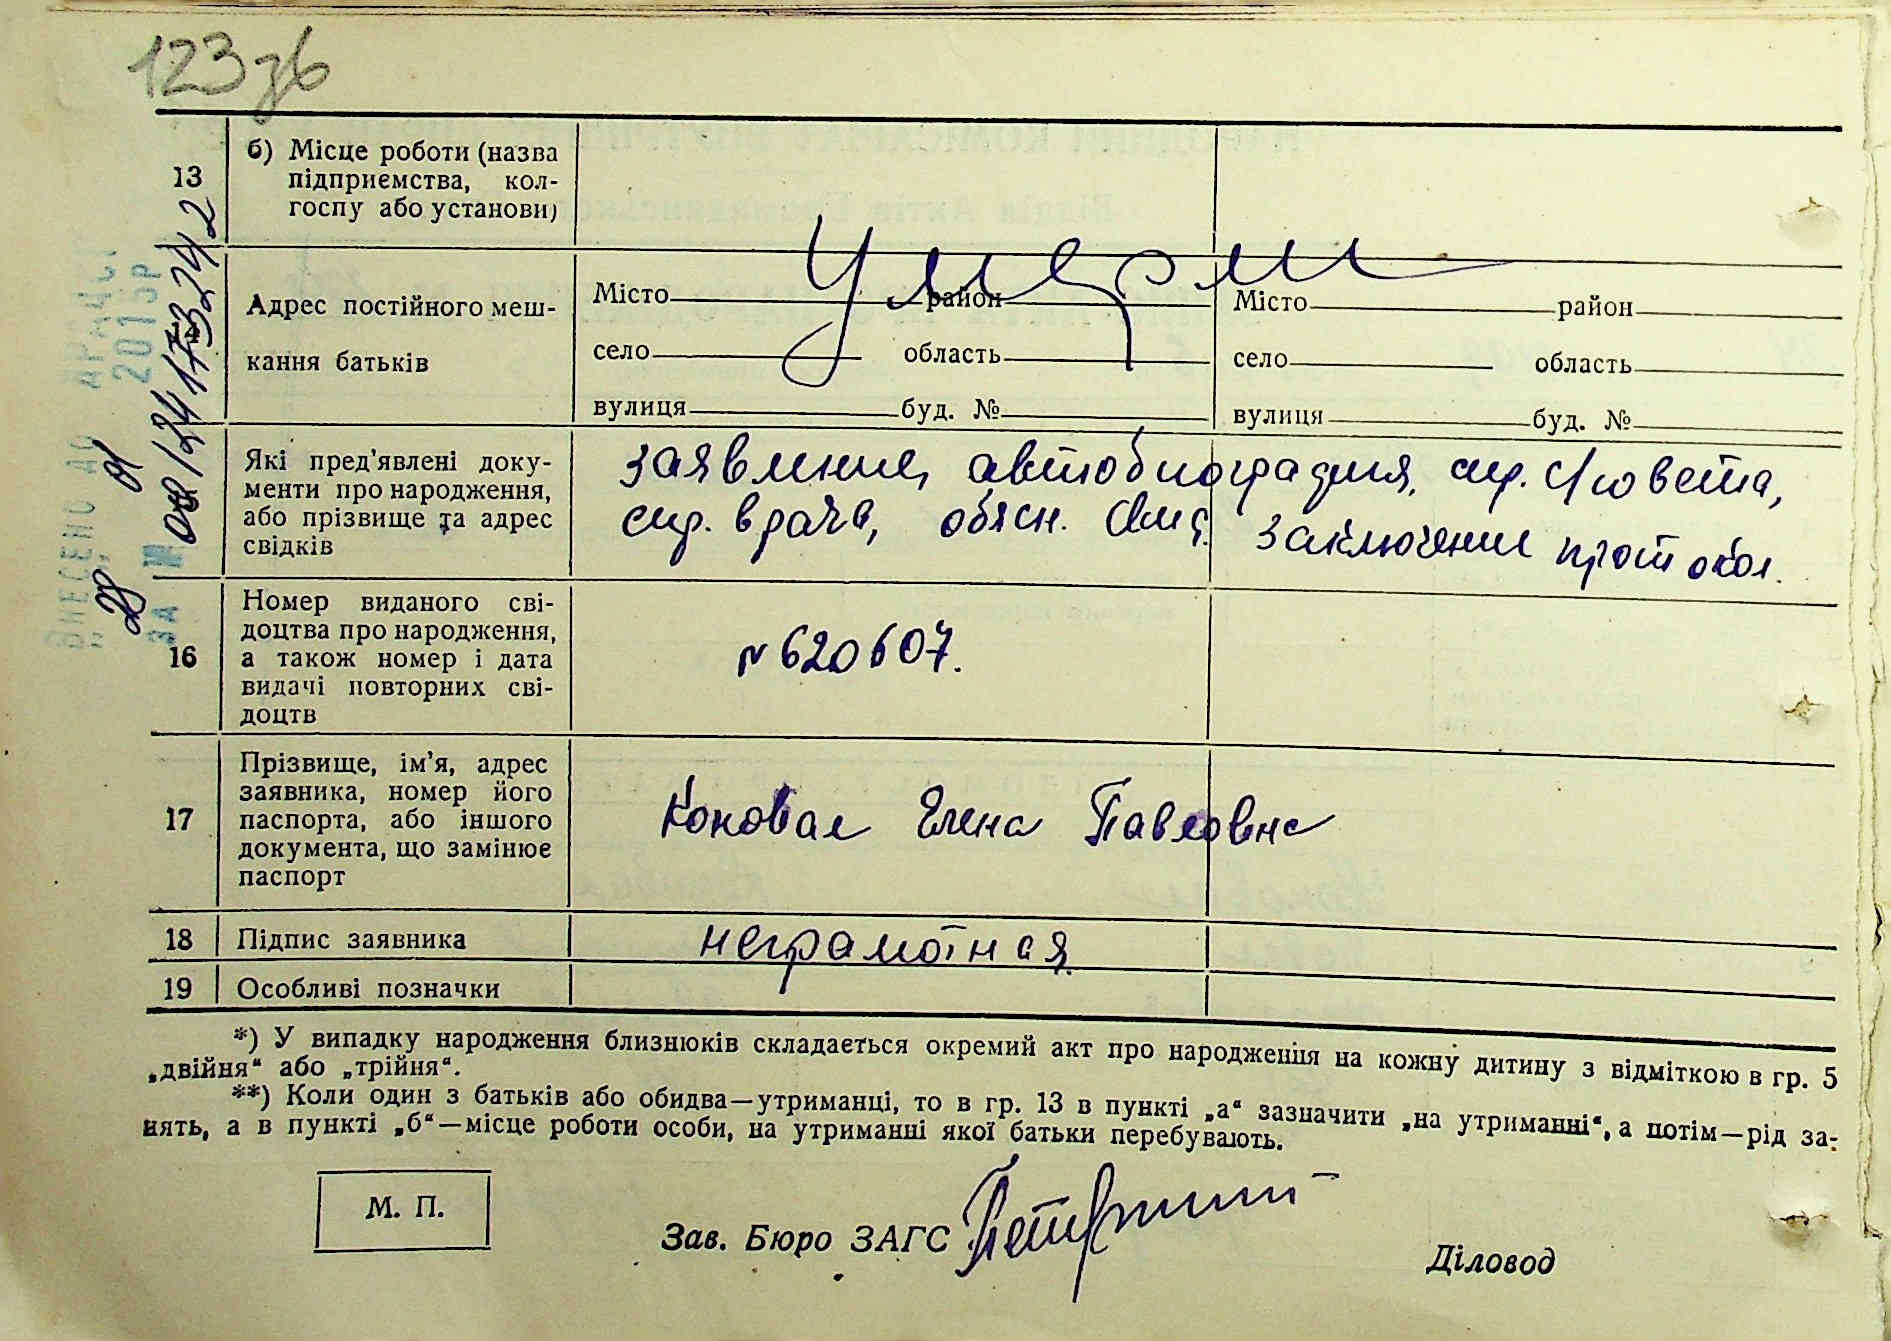 123зв
13
б) Місце роботи (назва
підприємства, кол-
госпу або установи)
Умерли
Адрес постійного меш-
кання батьків
Місто район
село область
вулиця буд. №
Місто район
село область
вулиця буд. №
Які пред'явлені доку-
менти про народження,
або прізвище та адрес
свідків
заявление, автобиография, спр. с/совета,
спр. врача, обясн. свид. заключение протокол.
16
Номер виданого сві-
доцтва про народження,
а також номер і дата
видачі повторних сві-
доцтв
№ 620607.
17
Прізвище, ім'я, адрес
заявника, номер його
паспорта, або іншого
документа, що замінює
паспорт
Коновал Елена Павловна
18
Підпис заявника
неграмотная
19
Особливі позначки
*) У випадку народження близнюків складається окремий акт про народження на кожну дитину з відміткою в гр. 5
„двійня“ або „трійня“.
**) Коли один з батьків або обидва—утриманці, то в гр. 13 в пункті „а“ зазначити „на утриманні“, а потім—рід за-
нять, а в пункті „б“—місце роботи особи, на утриманні якої батьки перебувають.
М. П.
Зав. Бюро ЗАГС
Діловод
ВНЕСЕНО ДО ДРАЦСГ
28 01 2015р
ЗА №